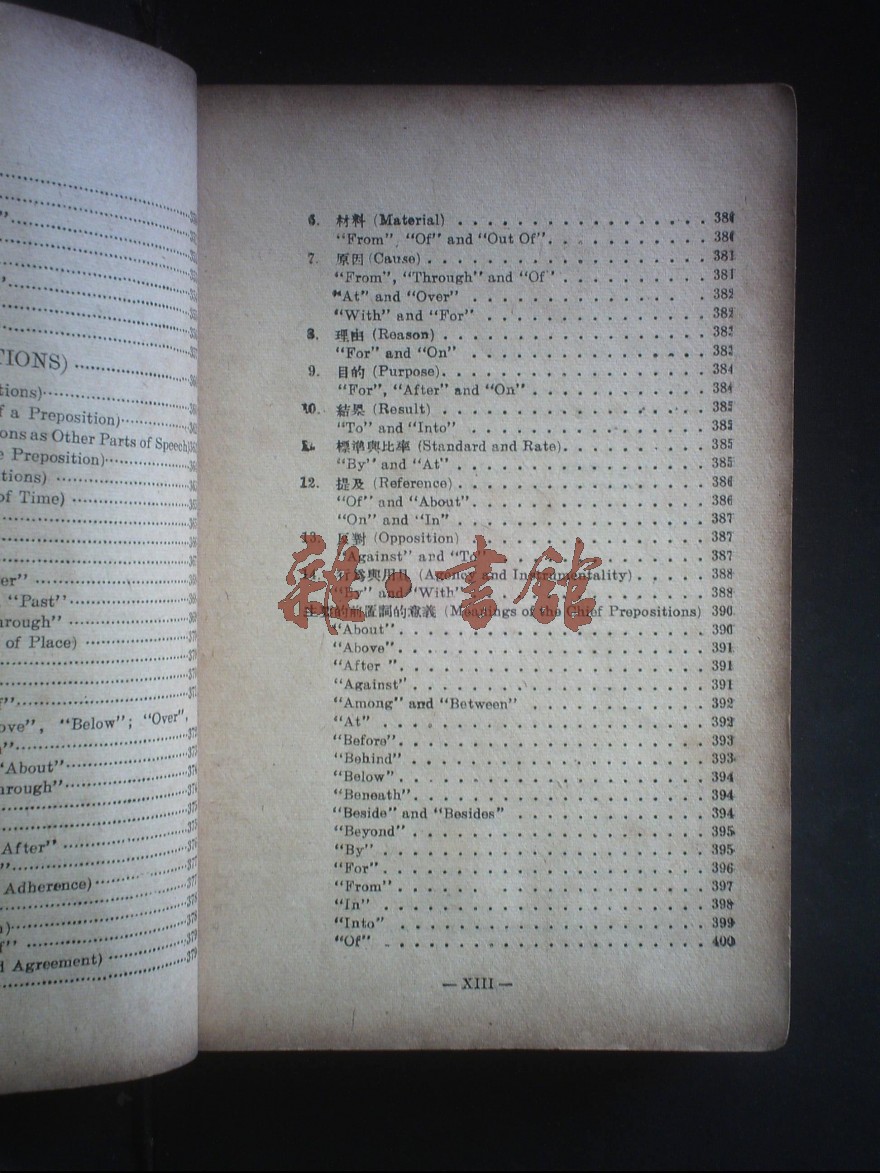 TIONS)
tions)
of a Preposition)
ons as Other Parts of Speech)
e Preposition)
tions)
of Time)
er"
"Past"
hrough"
of Place)
ove", "Below"; "Over",
"About"
hrough"
After"
Adherence)
d Agreement)
6. 材料 (Material)
"From", "Of" and "Out Of"
7. 原因 (Cause) 381
"From", "Through" and "Of" 381
"At" and "Over" 382
"With" and "For" 382
8. 理由 (Reason)
"For" and "On"
9. 目的 (Purpose) 384
"For", "After" and "On" 384
10. 結果 (Result) 385
"To" and "Into" 385
標準與比率 (Standard and Rate) 385
"By" and "At" 385
12. 提及 (Reference) 386
"Of" and "About" 386
"On" and "In" 387
13. 反對 (Opposition) 387
"Against" and "To" 387
14. 與用具 (Agency and Instrumentality) 388
"By" and "With" 388
主要的前置詞的意義 (Meanings of the Chief Prepositions) 390
"About" 390
"Above" 391
"After" 391
"Against" 391
"Among" and "Between" 392
"At" 392
"Before" 393
"Behind" 393
"Below" 394
"Beneath" 394
"Beside" and "Besides" 394
"Beyond" 395
"By" 395
"For" 396
"From" 397
"In" 398
"Into" 399
"Of" 400
— XIII —
雜·書館